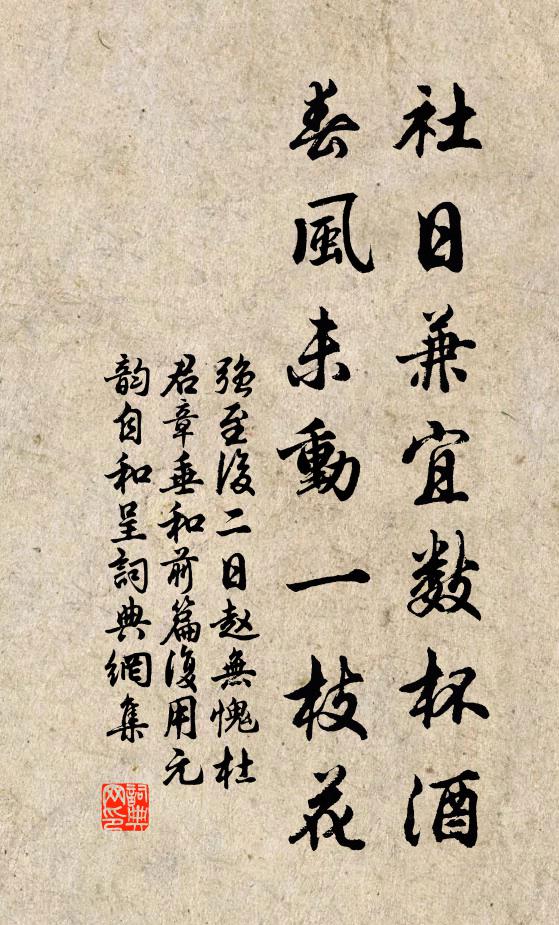 社日兼宜數杯酒
春風未動一枝花
強至後二日趙無愧杜
君章垂和前篇復用元
韵自和呈詞典網集
詞典
网印